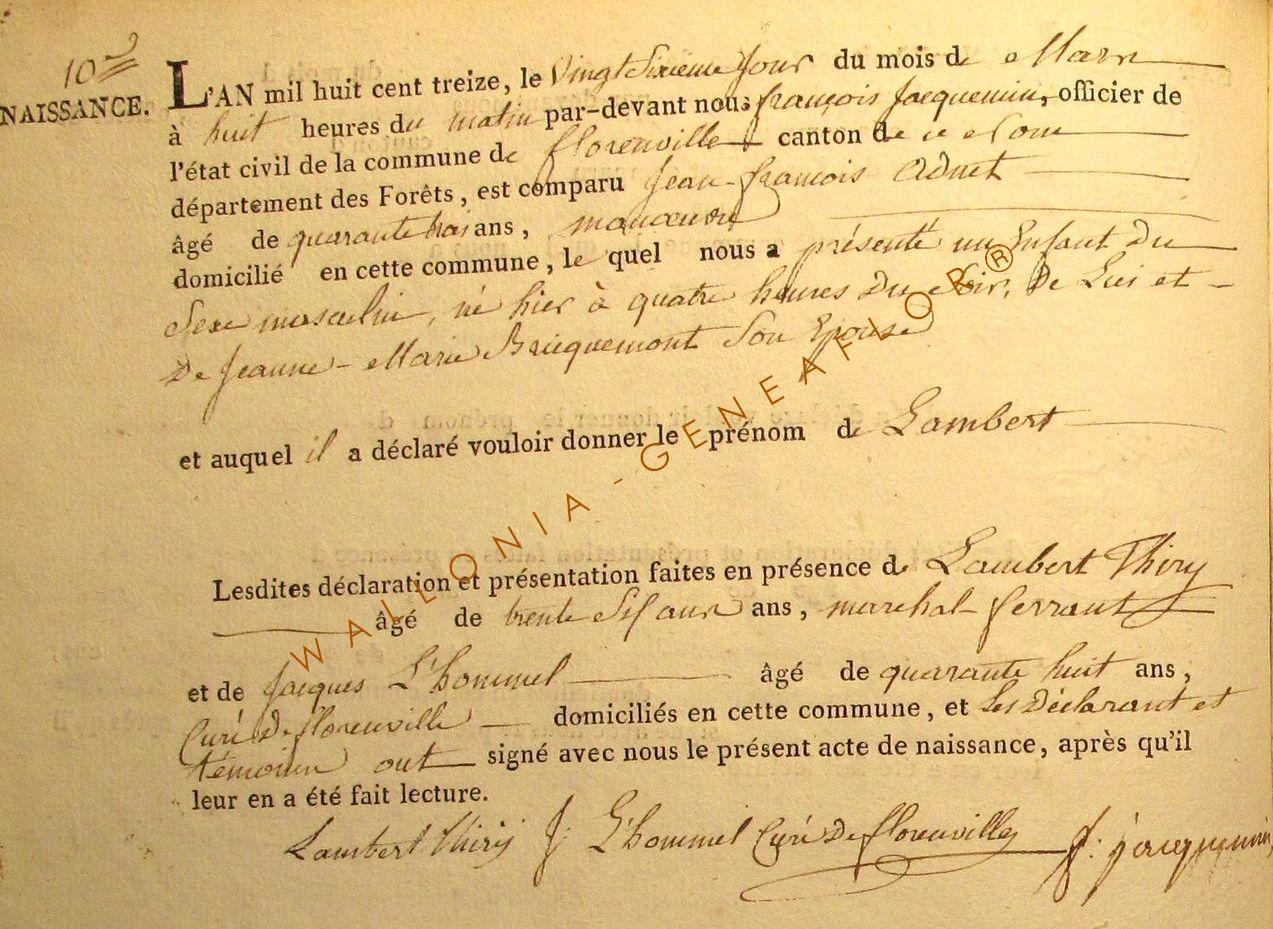 10me
NAISSANCE.
L'AN mil huit cent treize, le vingt sixieme jour du mois de Mars
à huit heures du matin par-devant nous françois Jacquemin, officier de
l'état civil de la commune de florenville canton de ce Nom
département des Forêts, est comparu Jean-françois Adnet
âgé de quarante trois ans, manœuvre
domicilié en cette commune, le quel nous a présenté un Enfant du
Sexe masculin, né hier à quatre heures du Soir, De Lui et
De Jeanne-Marie Bricquemont Son Epouse
et auquel il a déclaré vouloir donner le prénom de Lambert
Lesdites déclaration et présentation faites en présence de Lambert Thiry
âgé de trente ans, marchal ferrant
et de Jacques L'hommel âgé de quarante huit ans,
Curé De florenville domiciliés en cette commune, et Les Déclarant et
témoins ont signé avec nous le présent acte de naissance, après qu'il
leur en a été fait lecture.
Lambert Thiry J: L'hommel Curé De florenville f: jacquemin
WALLONIA - GENEAFLOR ®